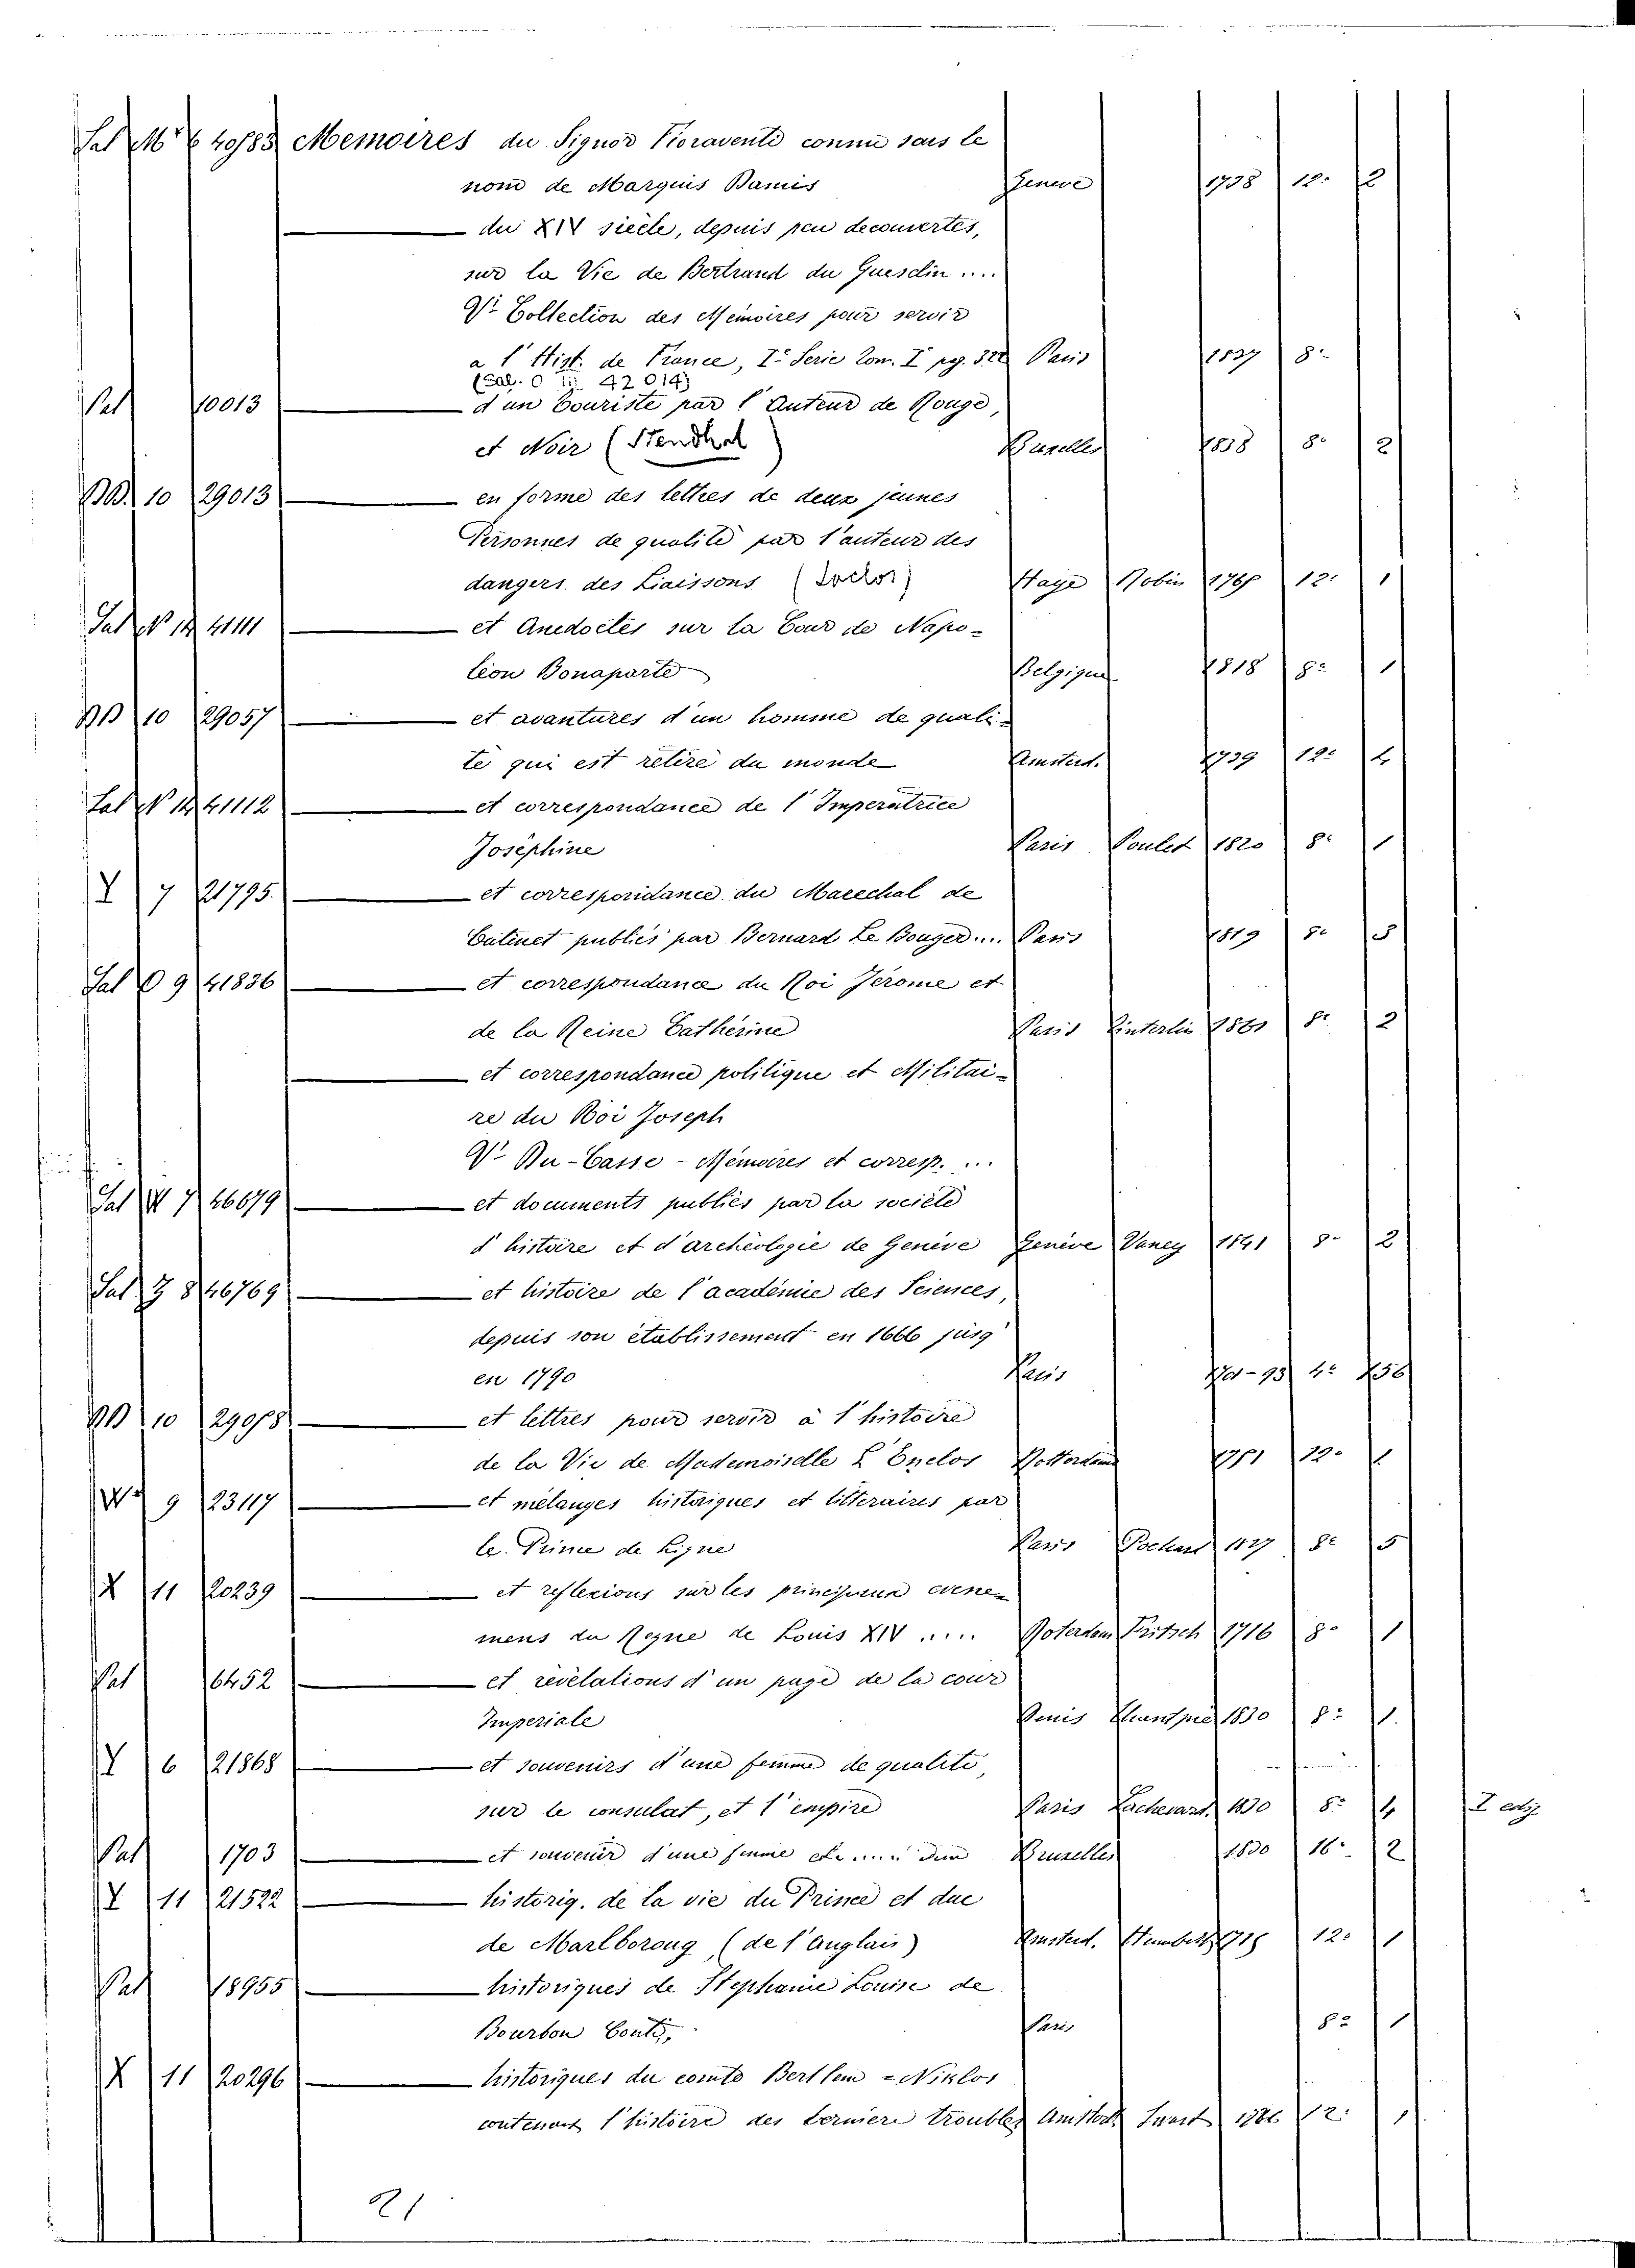 Sal M 6 40983 Memoires du Signor Fioraventi connu sous le
nom de Marquis Damis Geneve 1738 12º 2
— du XIV siècle, depuis peu decouvertes,
sur la Vie de Bertrand du Guesclin ....
Vi Collection des Mémoires pour servir
a l' Hist. de France, I.e Serie Tom. I pg. Paris 8º
(Sal. O 42014)
Sal 10013 — d'un Touriste par l'Auteur de Rouge,
et Noir (Stendhal) Bruxelles 1838 8º 2
BB. 10 29013 — en forme des lettres de deux jeunes
Personnes de qualité par l'auteur des
dangers des Liaissons Haye Robin 12º 1
Sal N 14 41111 — et Anedoctes sur la Cour de Napo-
léon Bonaparte Belgique 1818 8º 1
BB 10 29057 — et avantures d'un homme de quali-
té qui est retiré du monde Amsterd. 1739 12º 4
Sal N 14 41112 — et correspondance de l'Imperatrice
Joséphine Paris 1820 8º 1
Y 7 21795. — et correspondance du Marechal de
Catinet publiés par Bernard Le Bouger... Paris 1819 8º 3
Sal O 9 41836 — et correspondance du Roi Jerome et
de la Reine Catherine Paris 1861 8º 2
— et correspondance politique et Militai-
re du Roi Joseph
Vi Du-Casse - Mémoires et corresp. ...
Sal W 7 46679 — et documents publiés par la société
d'histoire et d'archéologie de Genève Genève Vaney 1841 8º 2
Sal Z 8 46769 — et histoire de l'académie des Sciences,
depuis son établissement en 1666 jusq'
en 1790 Paris 4º
BB 10 29058 — et lettres pour servir à l'histoire
de la Vie de Mademoiselle L'Enclos Rotterdam 1751 12º 1
W 9 23117 — et mélanges historiques et litteraires par
le Prince de Ligne Paris 1827 8º 5
X 11 20239 — et reflexions sur les principaux evene-
mens du Regne de Louis XIV ..... Roterdam Fritsch 1716 8º 1
Sal 6452 — et révélations d'un page de la cour
Imperiale Paris 1830 8º 1.
Y 6 21868 — et souvenirs d'une femme de qualité,
sur le consulat, et l'empire Paris 1830 8º 4 I ediz
Sal 1703 — et souvenir d'une femme etc ..... dem Bruxelles 1830 16º 2
Y 11 21522 — historiq. de la vie du Prince et duc
de Marlboroug (de l'Anglais) Amsterd. Humbert 12º 1
Sal 18955 — historiques de Stephanie Louise de
Bourbon Conti, Paris 8º 1
X 11 20296 — historiques du comte Bertlem = Niklos
contenant l'histoire des derniere troubles Amsterd. 12º 1
21